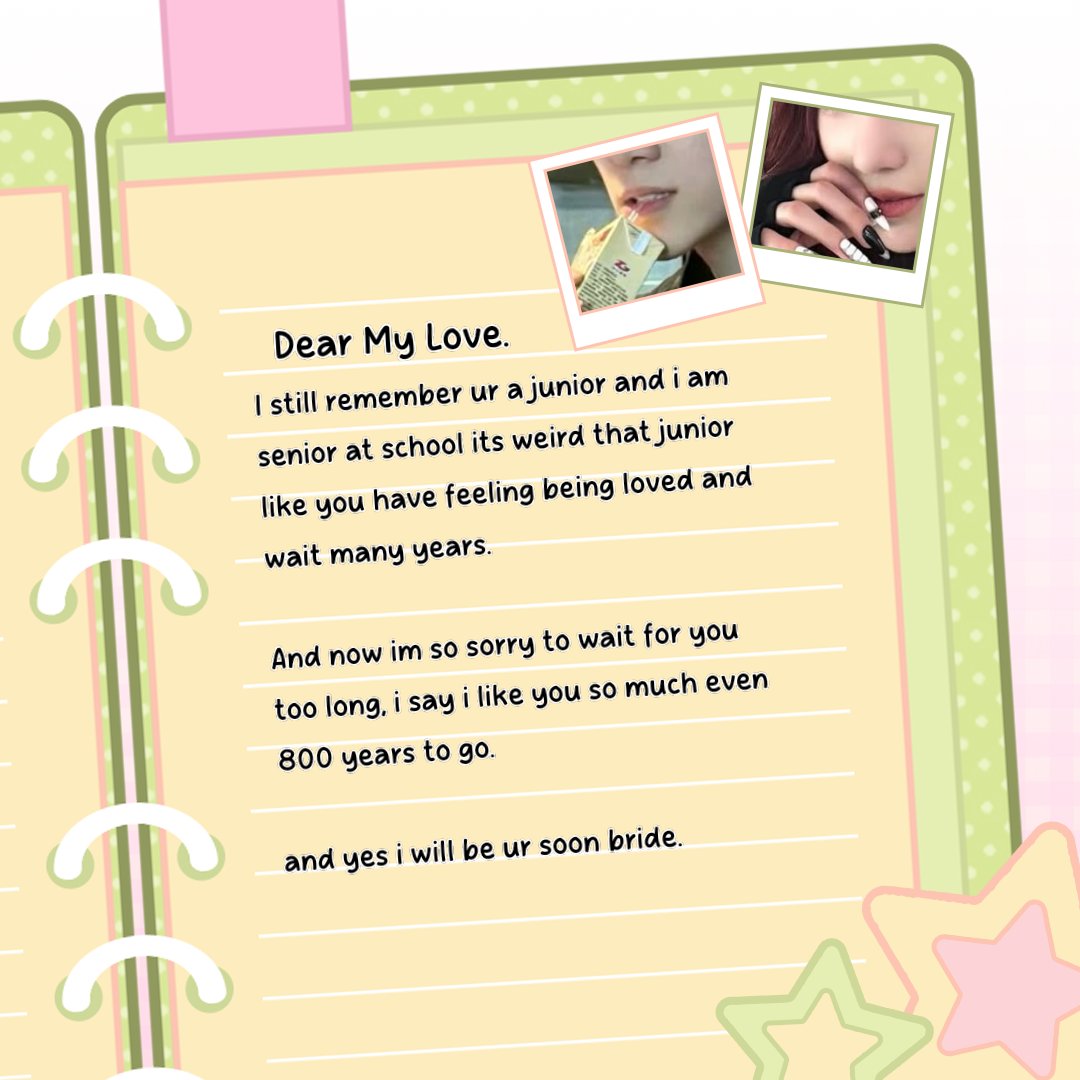 Dear My Love.
I still remember ur a junior and i am
senior at school its weird that junior
like you have feeling being loved and
wait many years.
And now im so sorry to wait for you
too long, i say i like you so much even
800 years to go.
and yes i will be ur soon bride.